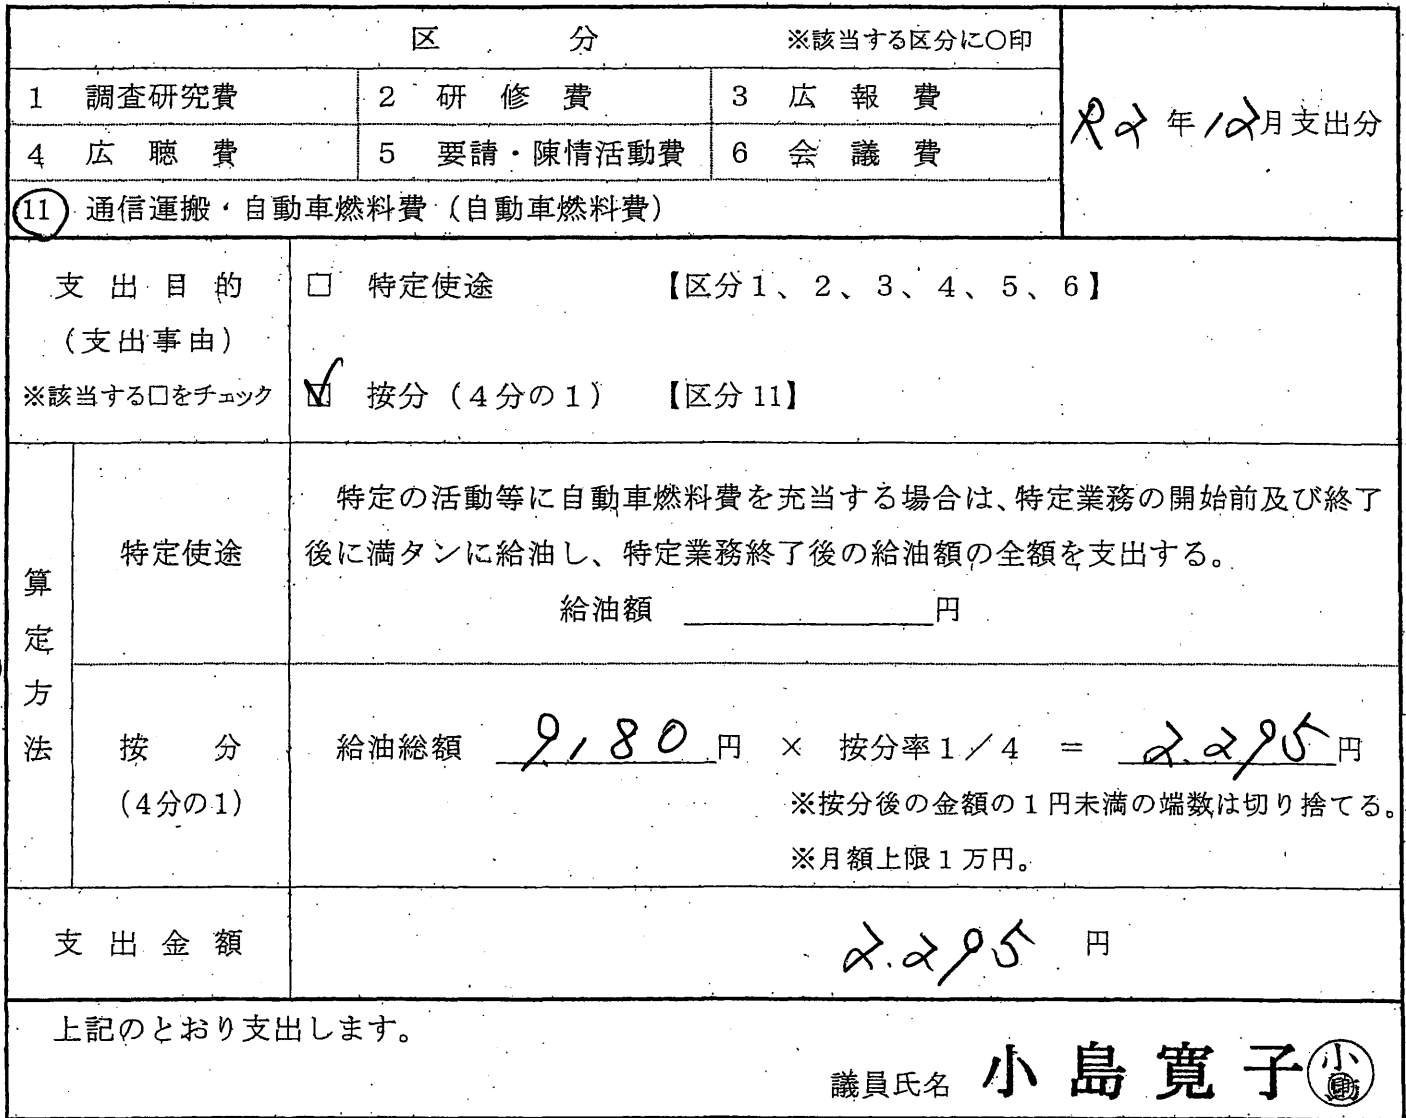 区 分 ※該当する区分に○印
1 調査研究費 2 研修費 3 広報費
R2年12月支出分
4 広聴費 5 要請・陳情活動費 6 会議費
11 通信運搬・自動車燃料費(自動車燃料費)
支出目的
(支出事由)
※該当する□をチェック
□ 特定使途 【区分1、2、3、4、5、6】
☑ 按分(4分の1) 【区分11】
算定方法
特定使途
特定の活動等に自動車燃料費を充当する場合は、特定業務の開始前及び終了
後に満タンに給油し、特定業務終了後の給油額の全額を支出する。
給油額 円
按分
(4分の1)
給油総額 9,180円 × 按分率1/4 = 2.295円
※按分後の金額の1円未満の端数は切り捨てる。
※月額上限1万円。
支出金額 2.295 円
上記のとおり支出します。
議員氏名 小島寛子 小島